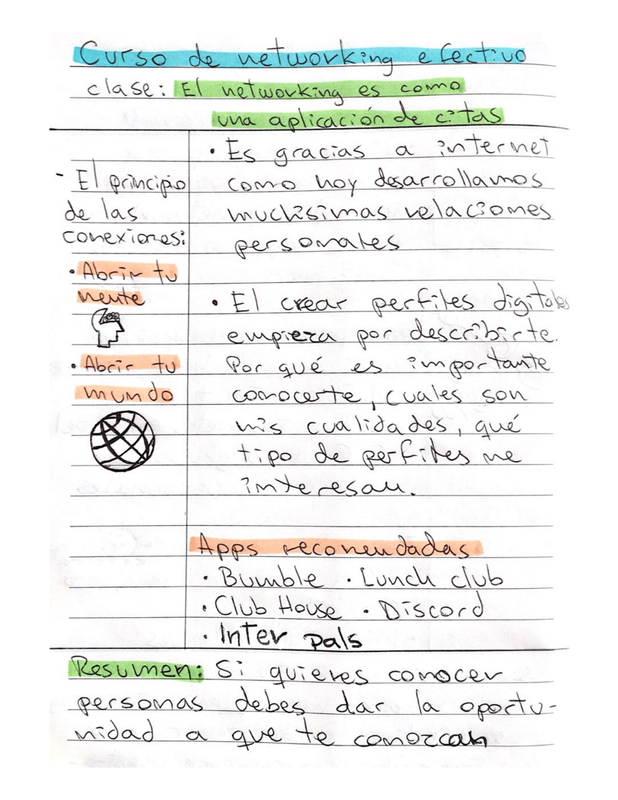 Curso de networking efectivo
clase: El networking es como
una aplicación de citas
- El principio
de las
conexiones:
• Abrir tu
mente
• Abrir tu
mundo
• Es gracias a internet
como hoy desarrollamos
muchísimas relaciones
personales
• El crear perfiles digitales
empieza por describirte.
Por qué es importante
conocerte, cuales son
mis cualidades, qué
tipo de perfiles me
interesan.
Apps recomendadas
• Bumble • Lunch club
• Club House • Discord
• Inter pals
Resumen: Si quieres conocer
personas debes dar la oportu-
nidad a que te conozcan